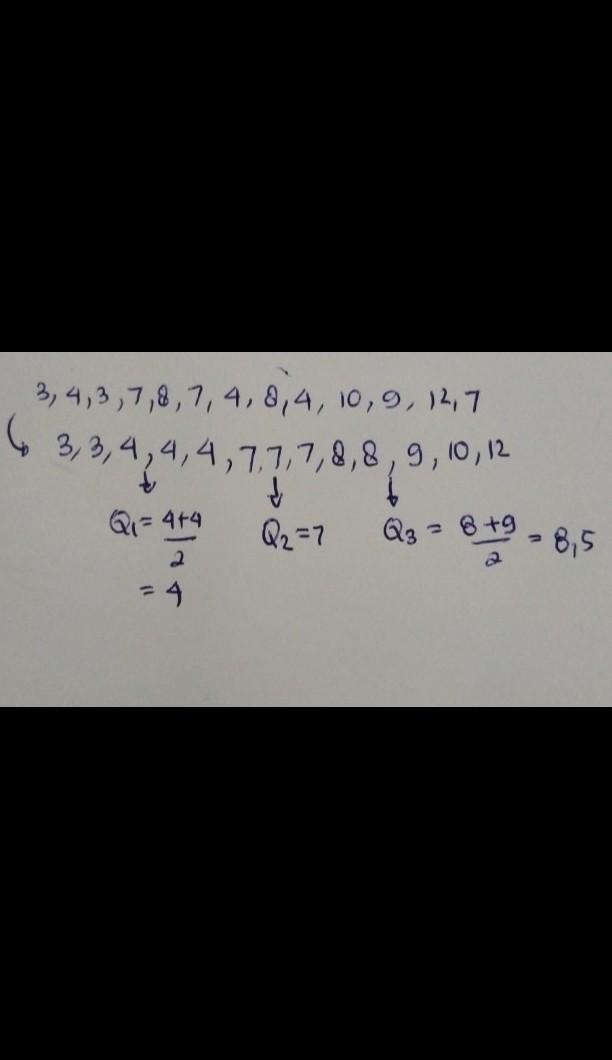 3, 4, 3, 7, 8, 7, 4, 8, 4, 10, 9, 12, 7
3, 3, 4, 4, 4, 7, 7, 7, 8, 8, 9, 10, 12
Q1 = 4+4/2 = 4
Q2 = 7
Q3 = 8+9/2 = 8,5